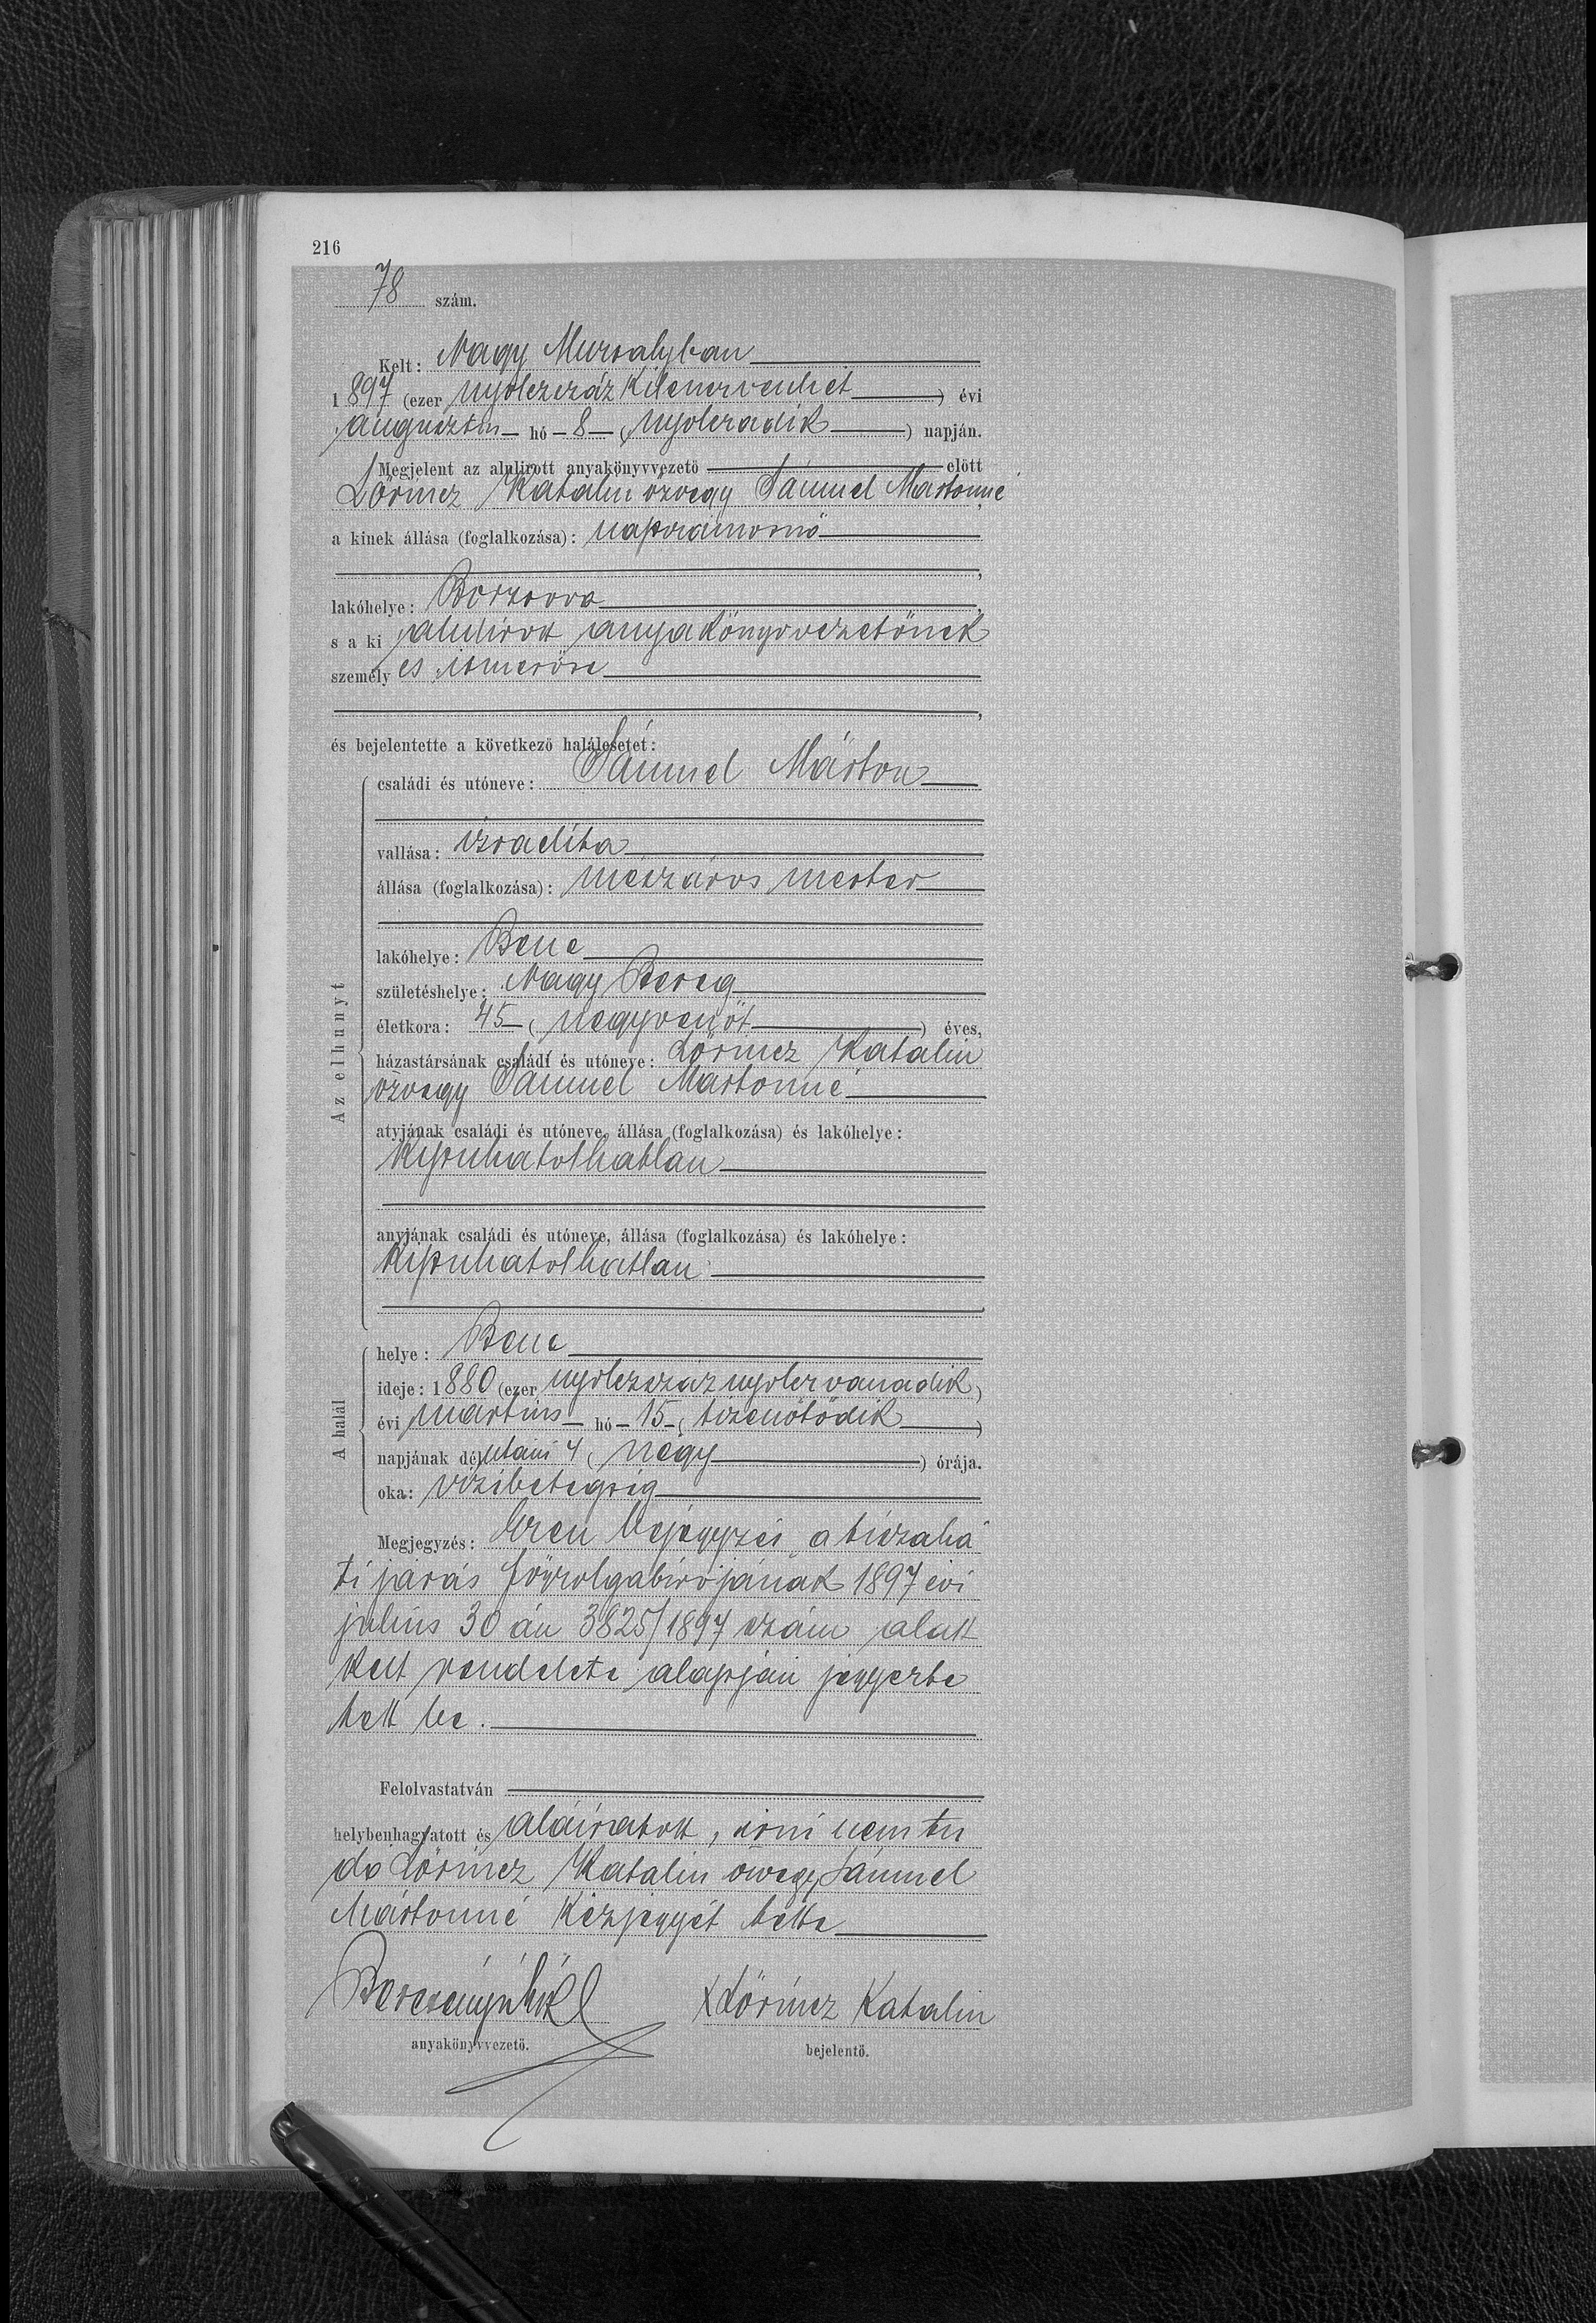 216
78 szám.
Kelt: Nagy Muzsalyban
1897 (ezer nyolczszáz kilenczvenhét) évi
augusztus hó 8 (nyolczadik) napján.
Megjelent az alulirott anyakönyvvezető előtt
Lőrincz Katalin özvegy Sámuel Mártonné,
a kinek állása (foglalkozása): napszámosnő
,
lakóhelye: Borzsova,
s a ki alulírott anyakönyvvezetőnek
személyes ismerőse
,
és bejelentette a következő halálesetet:
Az elhunyt
családi és utóneve: Sámuel Márton
vallása: izraelita
állása (foglalkozása): mészáros mester
lakóhelye: Bene
születéshelye: Nagy Bereg
életkora: 45 (negyvenöt) éves,
házastársának családi és utóneve: Lőrincz Katalin
özvegy Sámuel Mártonné
atyjának családi és utóneve, állása (foglalkozása) és lakóhelye:
Kipuhatolhatlan
anyjának családi és utóneve, állása (foglalkozása) és lakóhelye:
Kipuhatolhatlan
A halál
helye: Bene
ideje: 1880 (ezer nyolczszáznyolczvanadik)
évi martius hó 15 (tizenötödik)
napjának délutáni 4 (négy) órája.
oka: vizibetegség
Megjegyzés: Ezen bejegyzés a tiszahá
ti járás főszolgabirójának 1897 évi
július 30 án 3825/1897 szám alatt
kelt rendelete alapján jegyezte
tett be.
Felolvastatván
helybenhagyatott és aláíratott, írni nem tu
dó Lőrincz Katalin özvegy Sámuel
Mártonné kézjegyét tette
anyakönyvvezető.
X Lőrincz Katalin
bejelentő.